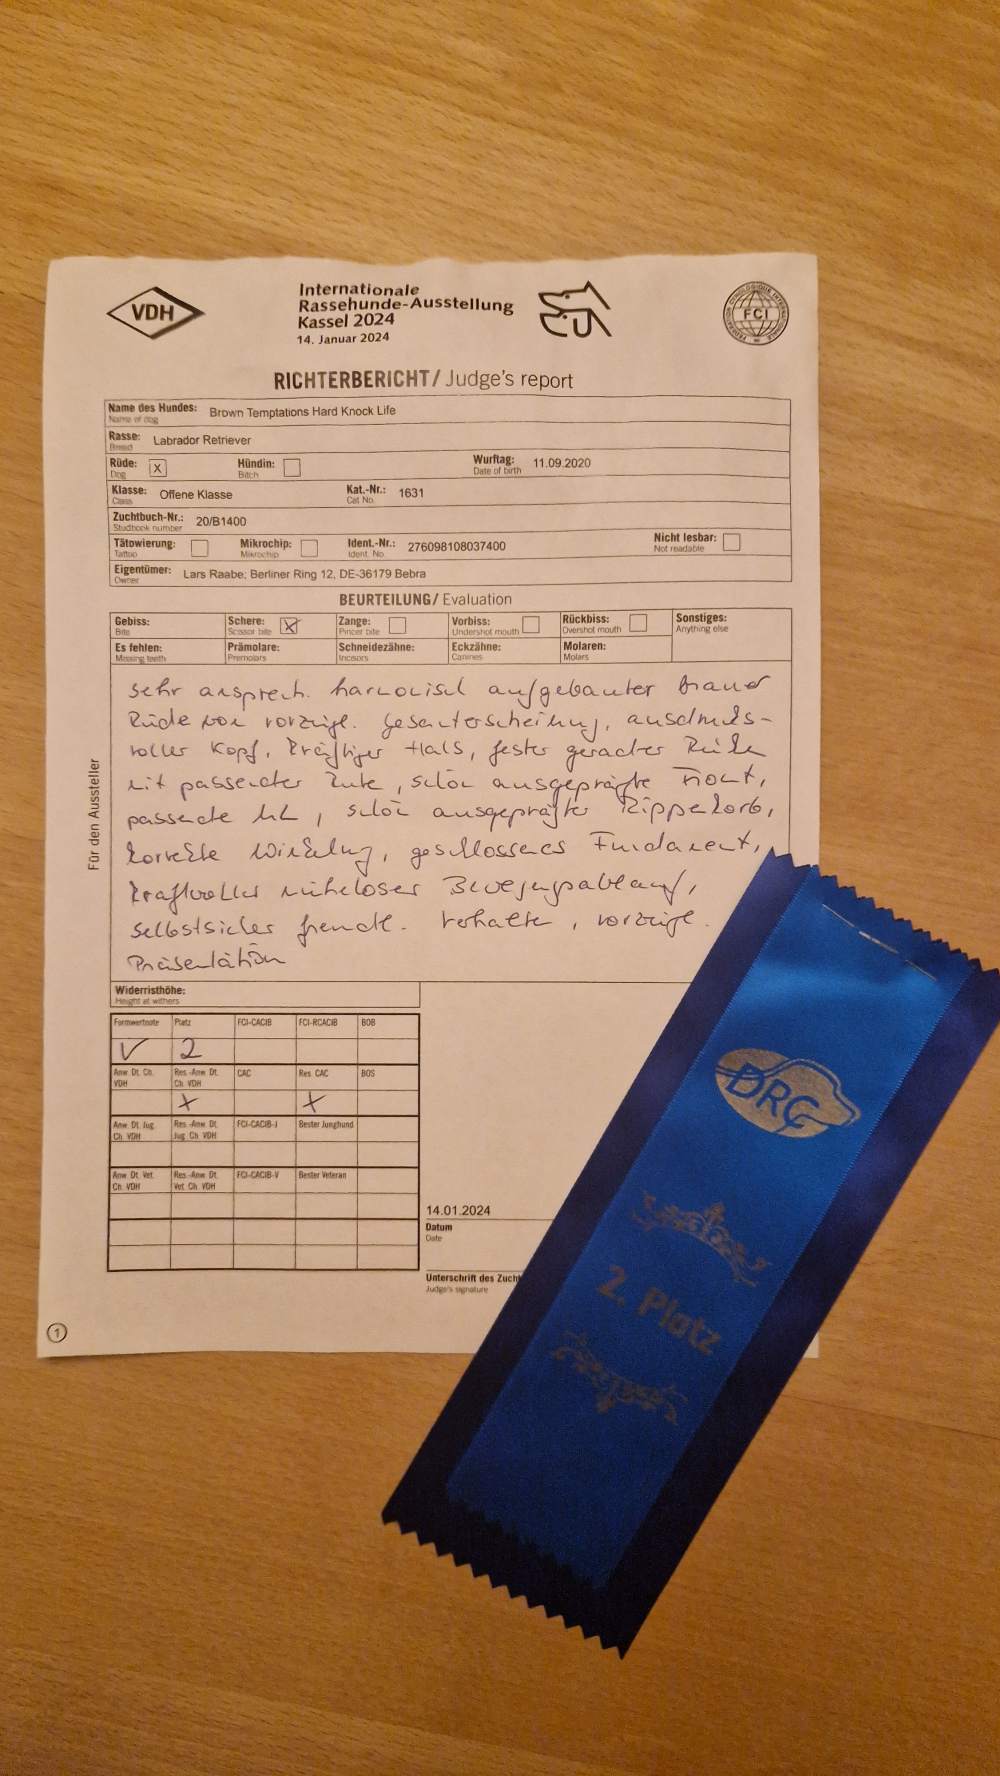 VDH
Internationale
Rassehunde-Ausstellung
Kassel 2024
14. Januar 2024
FCI
RICHTERBERICHT/ Judge's report
Name des Hundes: Brown Temptations Hard Knock Life
Name of dog
Rasse: Labrador Retriever
Breed
Rüde: X Hündin: Wurftag: 11.09.2020
Dog Bitch Date of birth
Klasse: Offene Klasse Kat.-Nr.: 1631
Class Cat No.
Zuchtbuch-Nr.: 20/B1400
Studbook number
Tätowierung: Mikrochip: Ident.-Nr.: 276098108037400 Nicht lesbar:
Tattoo Mikrochip Ident. No. Not readable
Eigentümer: Lars Raabe; Berliner Ring 12, DE-36179 Bebra
Owner
BEURTEILUNG/ Evaluation
Gebiss: Schere: X Zange: Vorbiss: Rückbiss: Sonstiges:
Bite Scissor bite Pincer bite Undershot mouth Overshot mouth Anything else
Es fehlen: Prämolare: Schneidezähne: Eckzähne: Molaren:
Missing teeth Premolars Incisors Canines Molars
Für den Aussteller
sehr ansprech. harmonisch aufgebauter brauner
Rüde von vorzügl. Gesamterscheinung, ausdrucks-
voller Kopf, kräftiger Hals, fester gerader Rücken
mit passender Rute, schön ausgeprägte Front,
passende, schön ausgeprägter Rippenkorb,
korrekte Winkelung, geschlossenes Fundament,
kraftvoller müheloser Bewegungsablauf,
selbstsicher freundl. Verhalten, vorzügl.
Präsentation
Widerristhöhe:
Height at withers
Formwertnote Platz FCI-CACIB FCI-RCACIB BOB
V 2
Anw. Dt. Ch. Res.-Anw. Dt. CAC Res. CAC BOS
VDH Ch. VDH
X X
Anw. Dt. Jug. Res.-Anw. Dt. FCI-CACIB-J Bester Junghund
Ch. VDH Jug. Ch. VDH
Anw. Dt. Vet. Res.-Anw. Dt. FCI-CACIB-V Bester Veteran
Ch. VDH Vet. Ch. VDH
14.01.2024
Datum
Date
Unterschrift des Zucht
Judge's signature
1
DRC
2. Platz